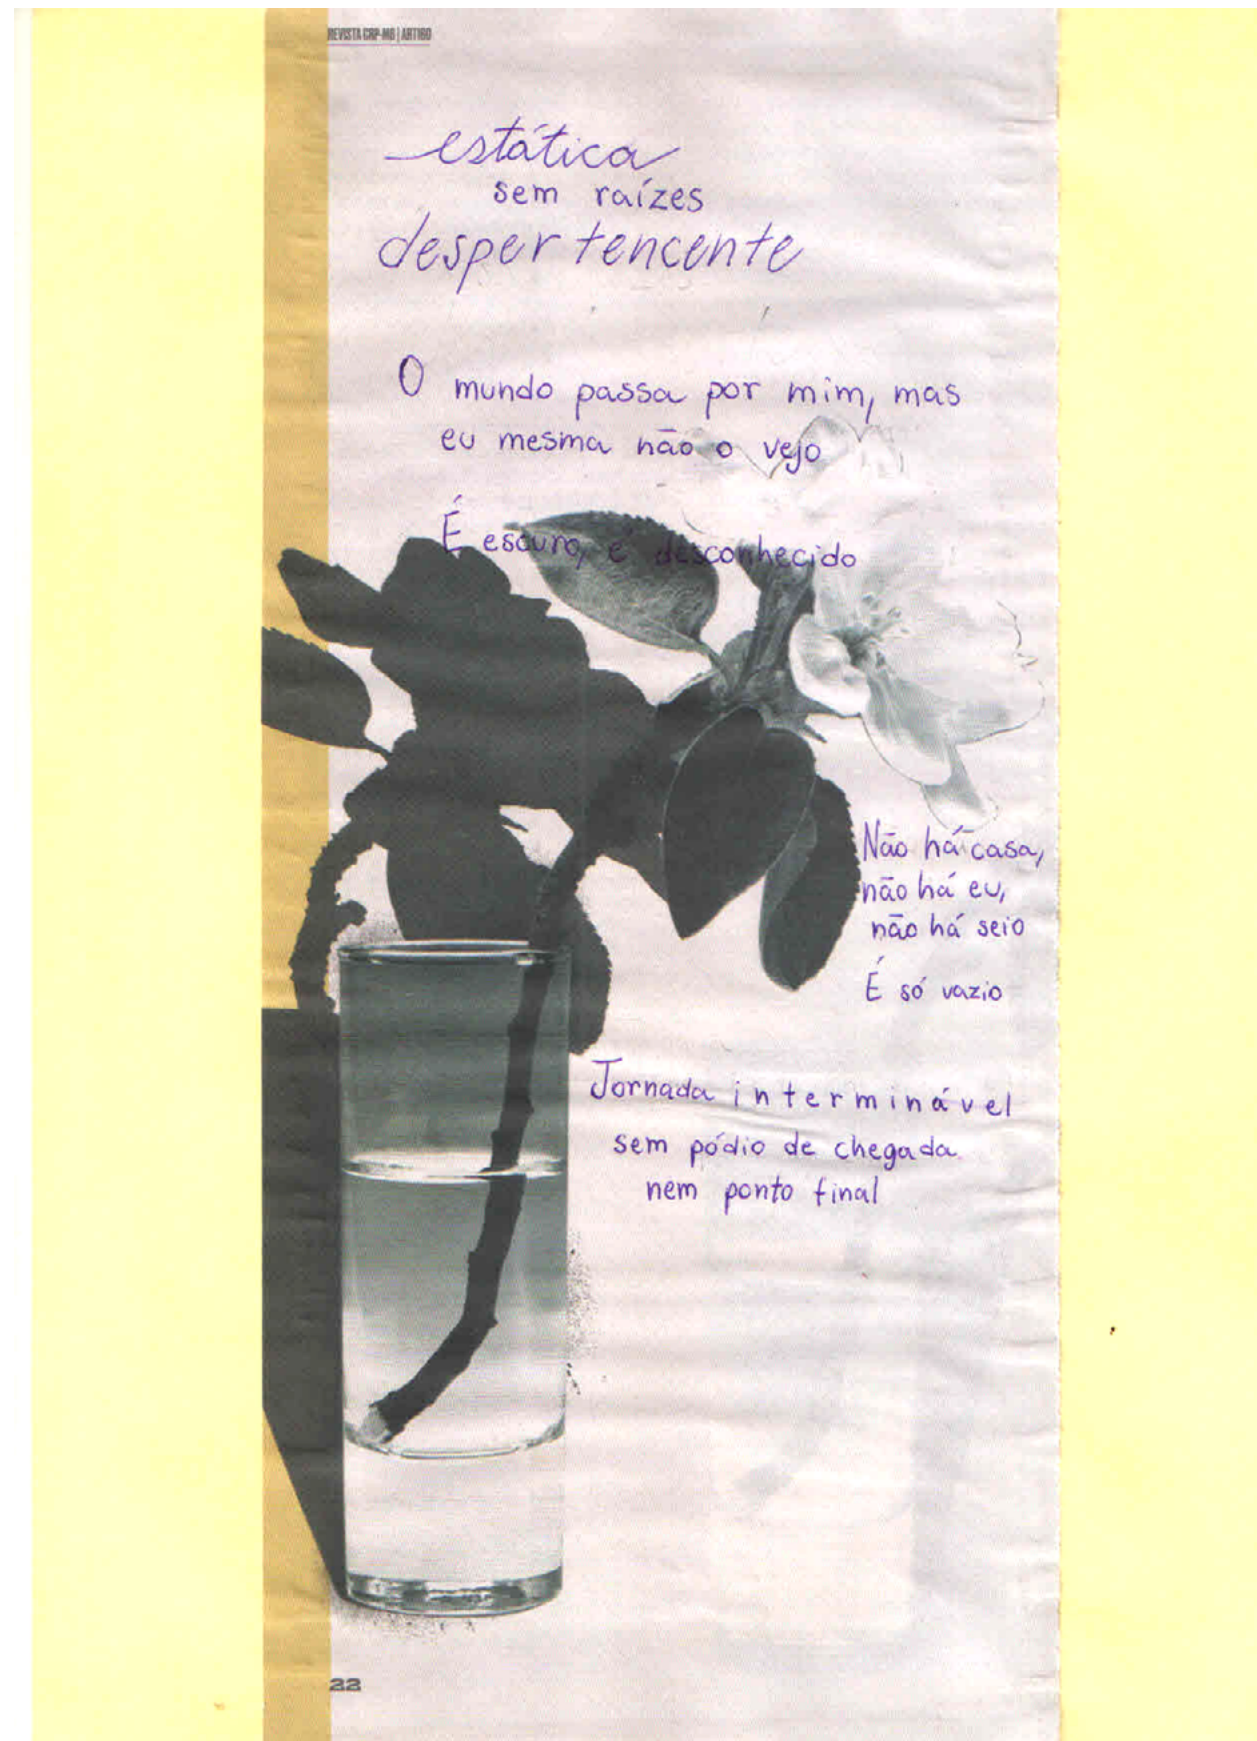 REVISTA CRP-MG | ARTIGO
estática
sem raízes
despertencente
O mundo passa por mim, mas
eu mesma não o vejo
É escuro, é desconhecido
Não há casa,
não há eu,
não há seio
É só vazio
Jornada interminável
sem pódio de chegada
nem ponto final
22